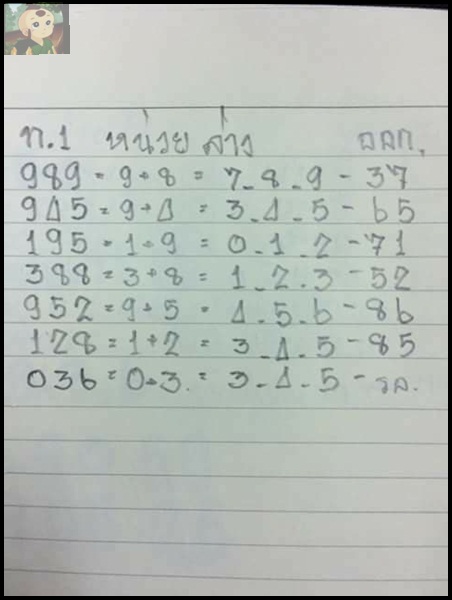 ท.1 หน่วย ล่าง ออก.
989 = 9+8 = 7-8-9 - 37
945 = 9+4 = 3-4-5 - 65
195 = 1+9 = 0-1-2 - 71
388 = 3+8 = 1-2-3 - 52
952 = 9+5 = 4-5-6 - 86
128 = 1+2 = 3-4-5 - 85
036 = 0+3 = 3-4-5 - รอ.